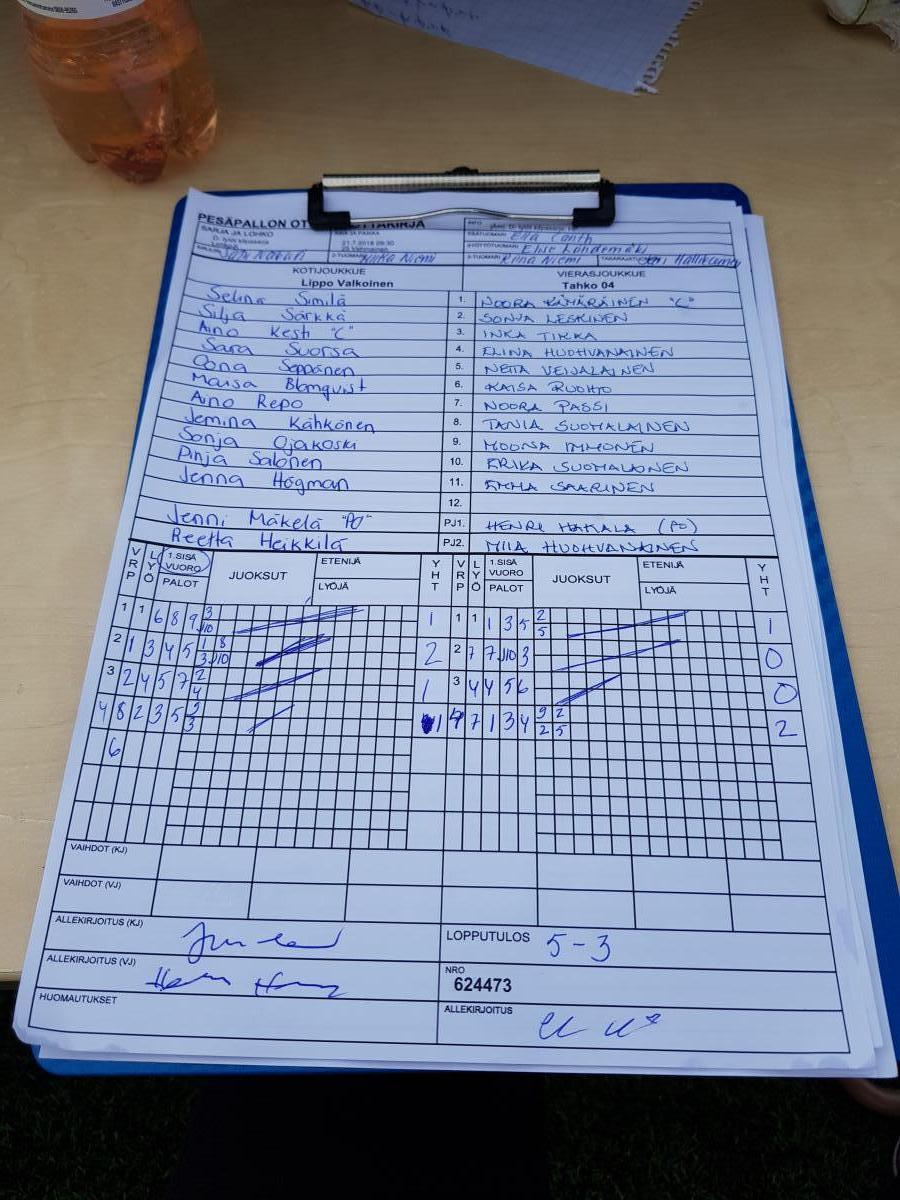 PESÄPALLON OT
SARJA JA LOHKO
21.7.2018 09:30
Ella Canth
Niemi
Riina Niemi
KOTIJOUKKUE VIERASJOUKKUE
Lippo Valkoinen Tahko 04
Selina Similä 1. NOORA KÄMÄRÄINEN "C"
Silja Särkkä 2. SONJA LESKINEN
Aino Kesti "C" 3. INKA TIKKA
Sara Suorsa 4. ELINA HUOHVANAINEN
Oona Seppänen 5. NETTA VEIJALAINEN
Maisa Blomqvist 6. KAISA RUOHO
Aino Repo 7. NOORA PASSI
Jemina Kähkönen 8. TANIA SUOMALAINEN
Sonja Ojakoski 9. MOONA IMMONEN
Pinja Salonen 10. ERIKA SUOMALAINEN
Jenna Högman 11. EMMA SAARINEN
12.
Jenni Mäkelä "PO" PJ1. HENRI HAKALA (PO)
Reetta Heikkilä PJ2. MILA HUOHVANAINEN
VRP LYÖ 1.SISÄ VUORO PALOT JUOKSUT ETENIJÄ LYÖJÄ YHT VRP LYÖ 1.SISÄ VUORO PALOT JUOKSUT ETENIJÄ LYÖJÄ YHT
1 1 6 8 9 3/J10 1 1 1 1 3 5 2/5 1
2 1 3 4 5 1/3 8/J10 2 2 7 7 J10 3 0
3 2 4 5 7 2/4 1 3 4 4 5 6 0
4 8 2 3 5 1 4 7 1 3 4 9/2 2/5 2
6
VAIHDOT (KJ)
VAIHDOT (VJ)
ALLEKIRJOITUS (KJ) LOPPUTULOS 5-3
ALLEKIRJOITUS (VJ) NRO
624473
HUOMAUTUKSET ALLEKIRJOITUS